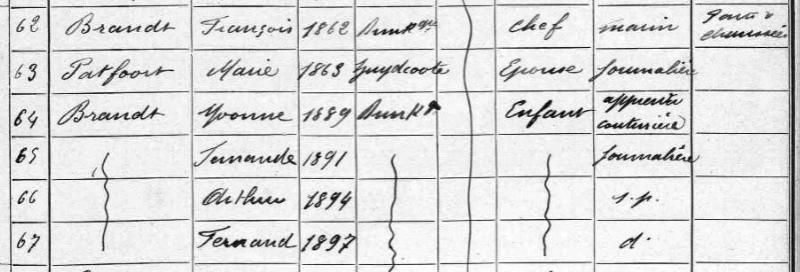 62 Brandt François 1862 Dunkque chef marin Ponts &
chaussées
63 Patfoort Marie 1863 Zuydcoote Epouse journalière
64 Brandt Yvonne 1889 Dunkq Enfant apprentie
couturière
65 Fernande 1891 journalière
66 Arthur 1894 s.p.
67 Fernand 1897 d.